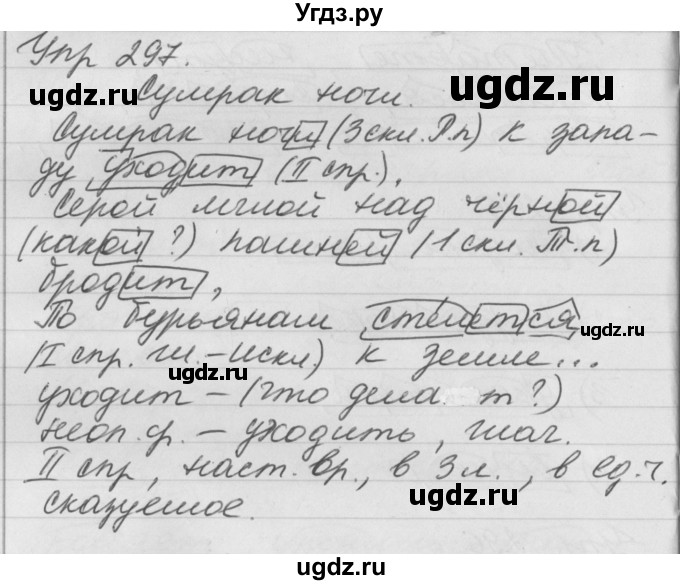 Угдз.ру
Упр 297.
ugdz.ru
ugdz.ru
Сумрак ночи.
Сумрак ночи (3 скл. Р.п) к запа-
ду уходит (II спр.),
Серой мглой над чёрной
(какой?) пашней (1 скл. Т.п)
бродит,
По бурьянам стелется
ugdz.ru
(I спр. гл.-искл) к земле...
ugdz.ru
уходит – (что дела т?)
неоп.ф. – уходить, глаг.
II спр, наст. вр., в 3 л., в ед.ч.
ugdz.ru
сказуемое.
ugdz.ru